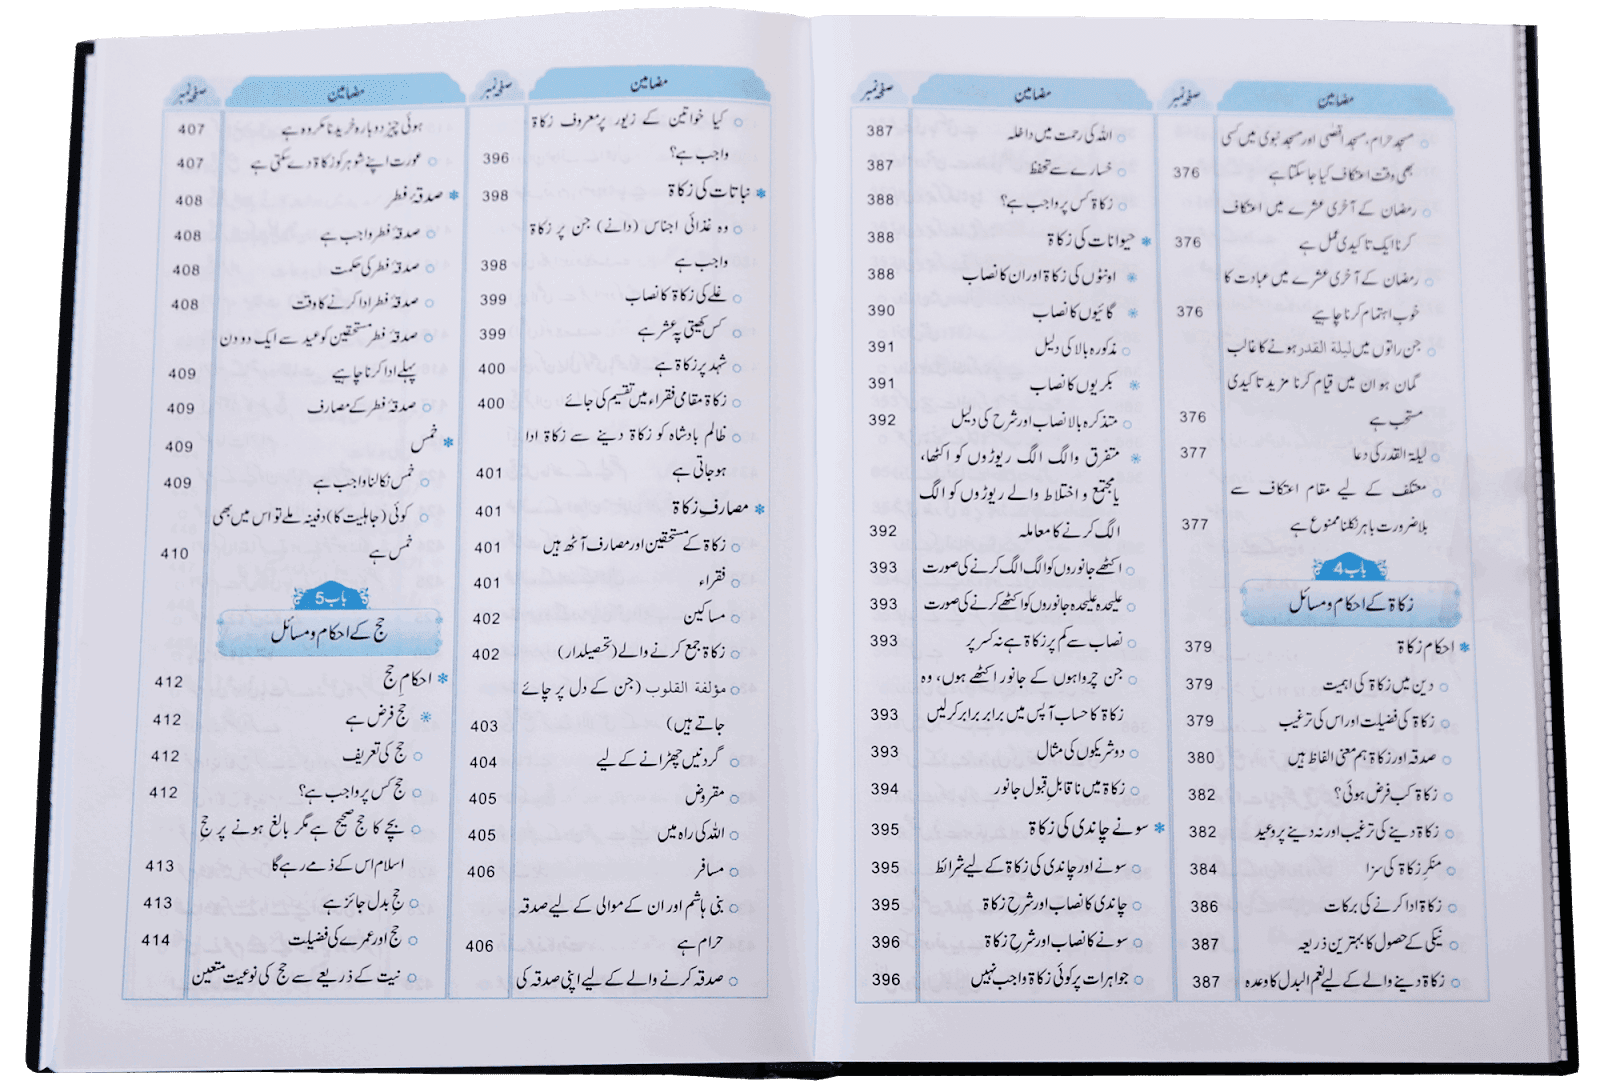 مضامین صفحہ نمبر
مسجد حرام، مسجد اقصٰی اور مسجد نبوی میں کسی
بھی وقت اعتکاف کیا جا سکتا ہے 376
رمضان کے آخری عشرے میں اعتکاف
کرنا ایک تاکیدی عمل ہے 376
رمضان کے آخری عشرے میں عبادت کا
خوب اہتمام کرنا چاہیے 376
جن راتوں میں لیلۃ القدر ہونے کا غالب
گمان ہو ان میں قیام کرنا مزید تاکیدی
مستحب ہے 376
لیلۃ القدر کی دعا 377
معتکف کے لیے مقام اعتکاف سے
بلا ضرورت باہر نکلنا ممنوع ہے 377
باب 4
زکاۃ کے احکام و مسائل
احکام زکاۃ 379
دین میں زکاۃ کی اہمیت 379
زکاۃ کی فضیلت اور اس کی ترغیب 379
صدقہ اور زکاۃ ہم معنی الفاظ ہیں 380
زکاۃ کب فرض ہوئی؟ 382
زکاۃ دینے کی ترغیب اور نہ دینے پر وعید 382
منکرِ زکاۃ کی سزا 384
زکاۃ ادا کرنے کی برکات 386
نیکی کے حصول کا بہترین ذریعہ 387
زکاۃ دینے والے کے لیے نعم البدل کا وعدہ 387
مضامین صفحہ نمبر
اللہ کی رحمت میں داخلہ 387
خسارے سے تحفظ 387
زکاۃ کس پر واجب ہے؟ 388
حیوانات کی زکاۃ 388
اونٹوں کی زکاۃ اور ان کا نصاب 388
گائیوں کا نصاب 390
مذکورہ بالا کی دلیل 391
بکریوں کا نصاب 391
متذکرہ بالا نصاب اور شرح کی دلیل 392
متفرق و الگ الگ ریوڑوں کو اکٹھا،
یا مجتمع و اختلاط والے ریوڑوں کو الگ
الگ کرنے کا معاملہ 392
اکٹھے جانوروں کو الگ الگ کرنے کی صورت 393
علیحدہ علیحدہ جانوروں کو اکٹھے کرنے کی صورت 393
نصاب سے کم پر زکاۃ ہے نہ کسر پر 393
جن چرواہوں کے جانور اکٹھے ہوں، وہ
زکاۃ کا حساب آپس میں برابر برابر کر لیں 393
دو شریکوں کی مثال 393
زکاۃ میں ناقابلِ قبول جانور 394
سونے چاندی کی زکاۃ 395
سونے اور چاندی کی زکاۃ کے لیے شرائط 395
چاندی کا نصاب اور شرحِ زکاۃ 395
سونے کا نصاب اور شرحِ زکاۃ 396
جواہرات پر کوئی زکاۃ واجب نہیں 396
مضامین صفحہ نمبر
کیا خواتین کے زیور پر معروف زکاۃ
واجب ہے؟ 396
نباتات کی زکاۃ 398
وہ غذائی اجناس (دانے) جن پر زکاۃ
واجب ہے 398
غلے کی زکاۃ کا نصاب 399
کس کھیتی پہ عشر ہے 399
شہد پر زکاۃ ہے 400
زکاۃ مقامی فقراء میں تقسیم کی جائے 400
ظالم بادشاہ کو زکاۃ دینے سے زکاۃ ادا
ہو جاتی ہے 401
مصارفِ زکاۃ 401
زکاۃ کے مستحقین اور مصارف آٹھ ہیں 401
فقراء 401
مساکین 402
زکاۃ جمع کرنے والے (تحصیلدار) 402
مؤلفۃ القلوب (جن کے دل پر چائے
جاتے ہیں) 403
گردنیں چھڑانے کے لیے 404
مقروض 405
اللہ کی راہ میں 405
مسافر 406
بنی ہاشم اور ان کے موالی کے لیے صدقہ
حرام ہے 406
صدقہ کرنے والے کے لیے اپنی صدقہ کی
مضامین صفحہ نمبر
ہوئی چیز دوبارہ خریدنا مکروہ ہے 407
عورت اپنے شوہر کو زکاۃ دے سکتی ہے 407
صدقۂ فطر 408
صدقۂ فطر واجب ہے 408
صدقۂ فطر کی حکمت 408
صدقۂ فطر ادا کرنے کا وقت 408
صدقۂ فطر مستحقین کو عید سے ایک دو دن
پہلے ادا کرنا چاہیے 409
صدقۂ فطر کے مصارف 409
خمس 409
خمس نکالنا واجب ہے 409
کوئی (جاہلیت کا) دفینہ ملے تو اس میں بھی
خمس ہے 410
باب 5
حج کے احکام و مسائل
احکامِ حج 412
حج فرض ہے 412
حج کی تعریف 412
حج کس پر واجب ہے؟ 412
بچے کا حج صحیح ہے مگر بالغ ہونے پر حجِ
اسلام اس کے ذمے رہے گا 413
حجِ بدل جائز ہے 413
حج اور عمرے کی فضیلت 414
نیت کے ذریعے سے حج کی نوعیت متعین